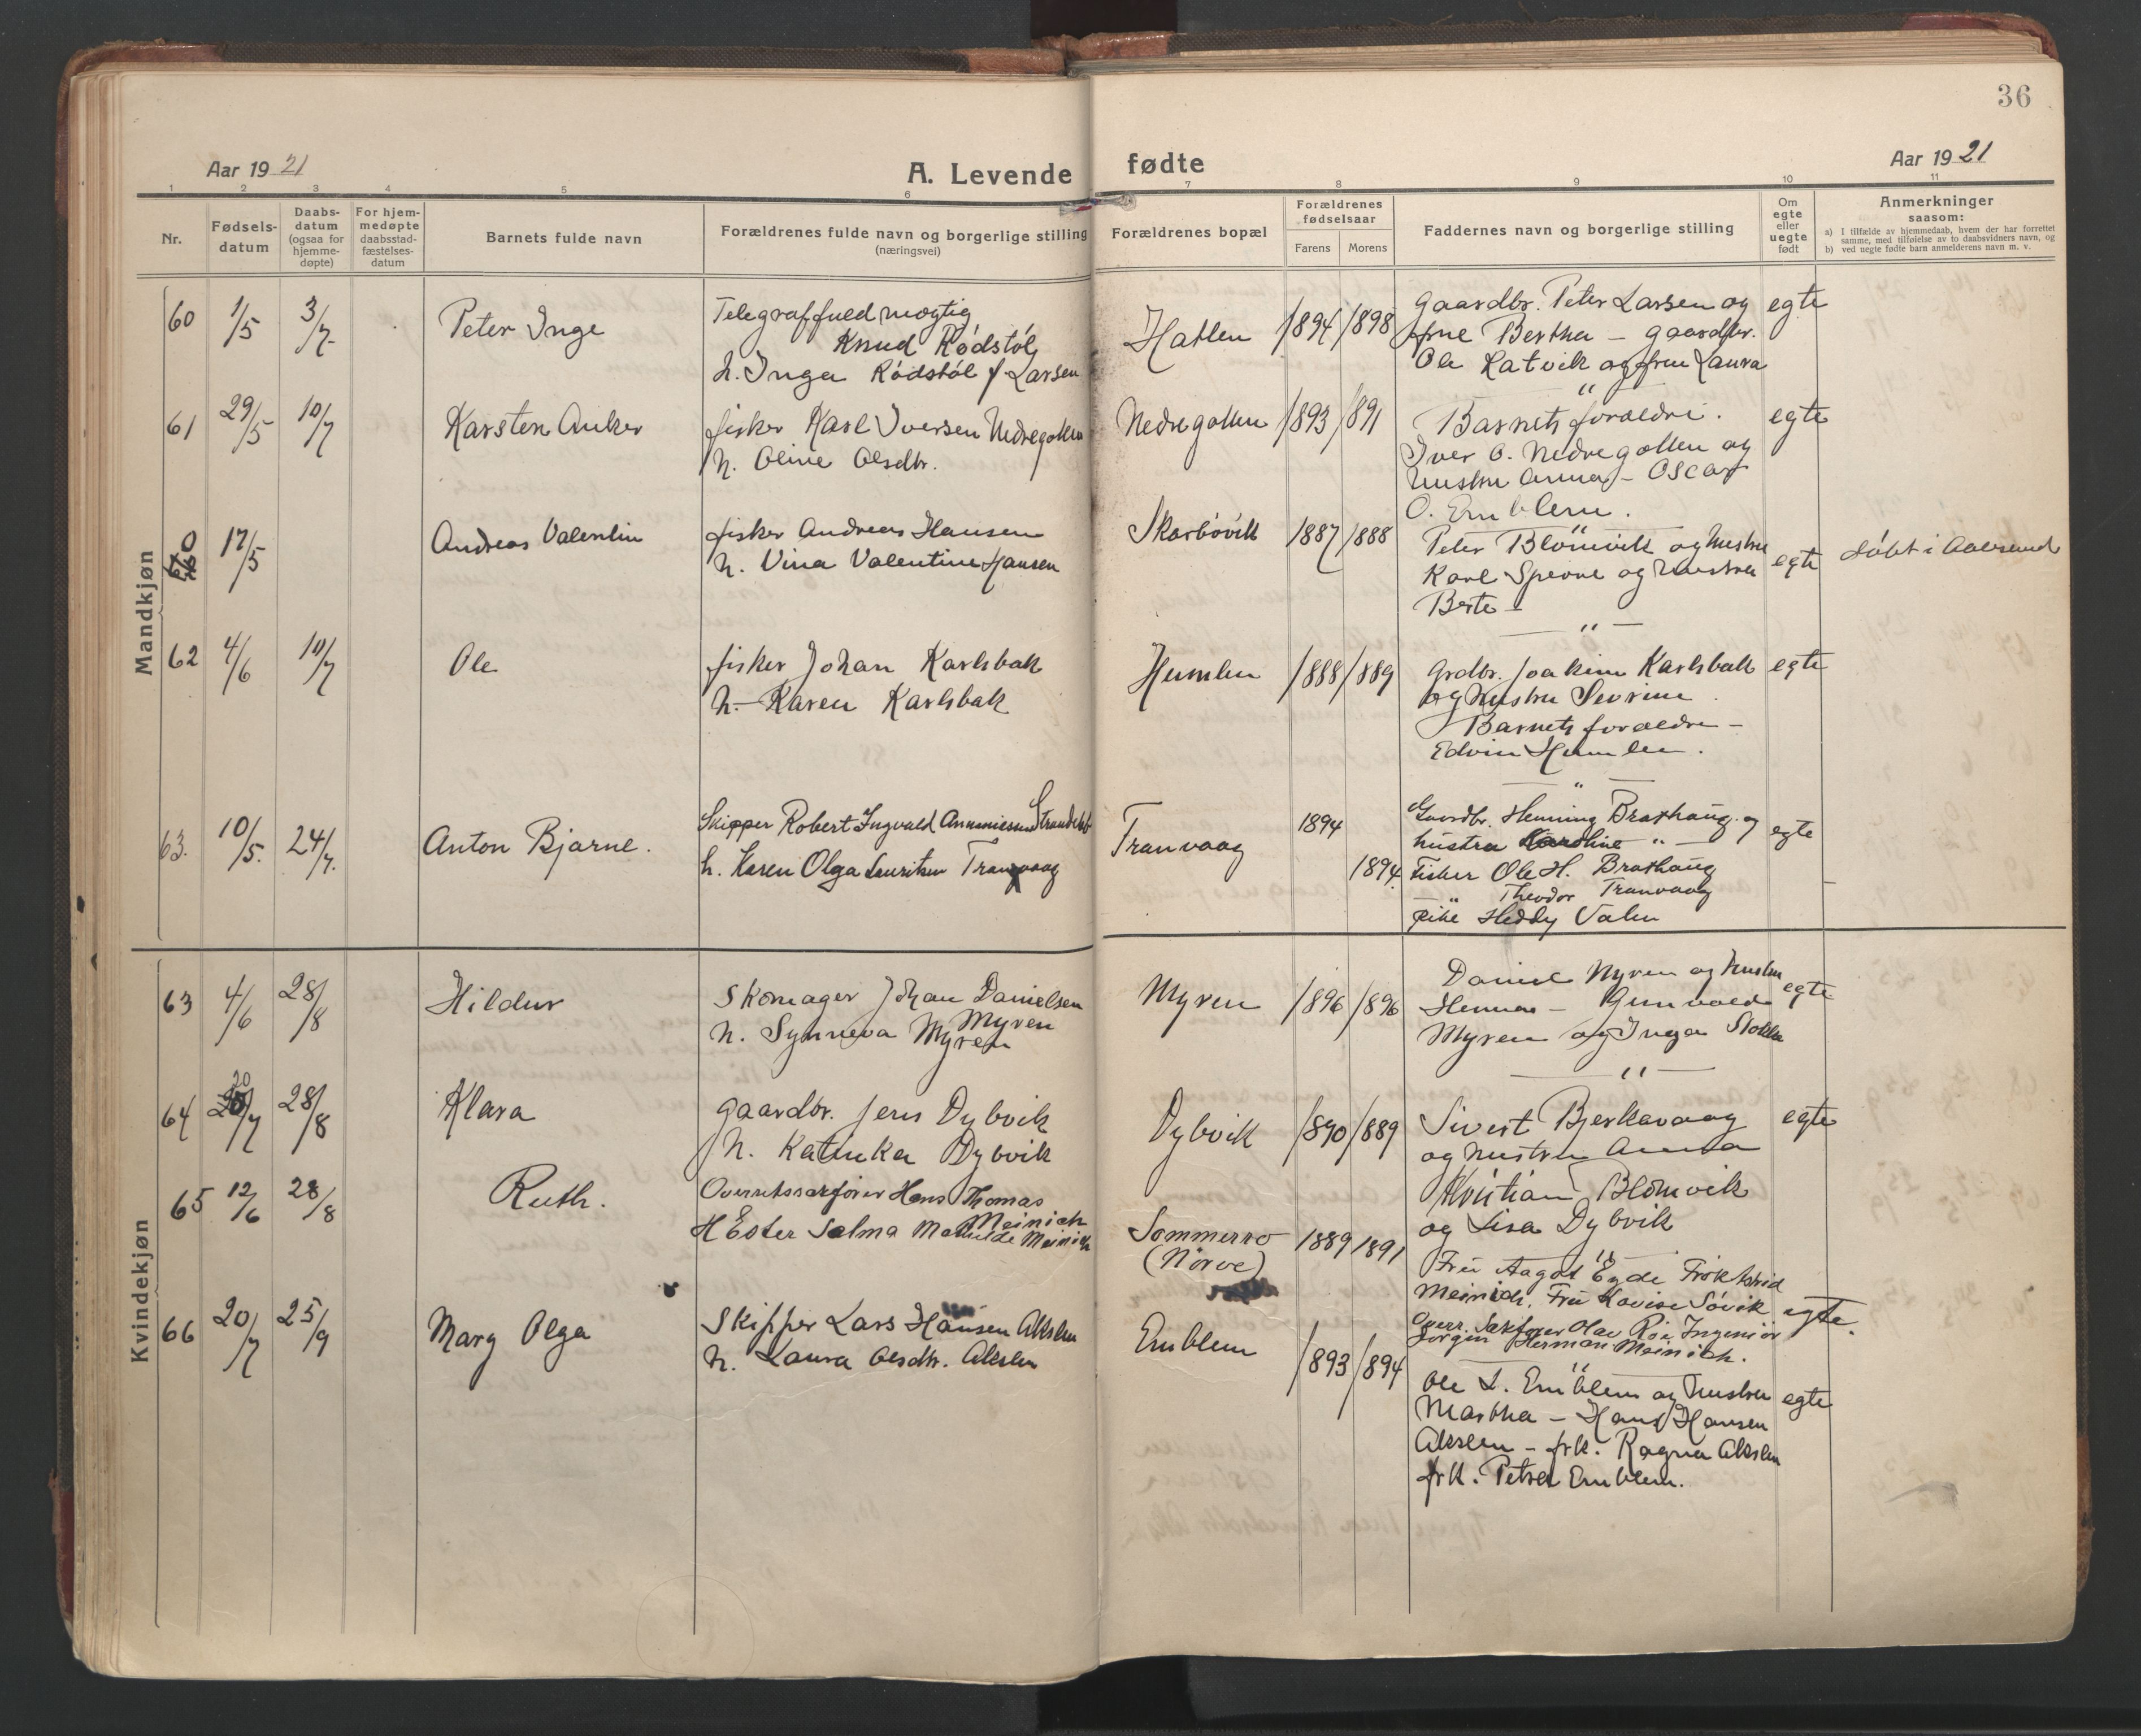 36
Aar 1921
A. Levende fødte
Aar 1921
1 2 3 4 5 6 7 8 9 10 11
Nr.
Fødsels-
datum
Daabs-
datum
(ogsaa for
hjemme-
døpte)
For hjem-
medøpte
daabsstad-
fæstelses-
datum
Barnets fulde navn
Forældrenes fulde navn og borgerlige stilling
(næringsvei)
Forældrenes bopæl
Forældrenes
fødselsaar
Farens Morens
Faddernes navn og borgerlige stilling
Om
egte
eller
uegte
født
Anmerkninger
saasom:
a) I tilfælde av hjemmedaab, hvem der har forrettet
samme, med tilføielse av to daabsvidners navn, og
b) ved uegte fødte barn anmelderens navn m. v.
Mandkjøn
60 1/5 3/7 Peter Inge
Telegraffuldmægtig
Knud Rödstöl
h. Inga Rödstöl f. Larsen
Hatlen 1894 1898
Gaardbr. Peter Larsen og
frue Bertha – gaardbr.
Ole Ratvik og frue Laura
egte
61 29/5 10/7 Karsten Anker
fisker Karl Iversen Nedregotten
h. Oline Olsdtr.
Nedregotten 1893 1891
Barnets forældre.
Iver O. Nedregotten og
hustru Anna – Oscar
O. Emblem.
egte
17/5 Andreas Valentin
fisker Andreas Hansen
h. Vina Valentine Hansen
Skarbövik 1887 1888
Peter Blomvik og hustru
Karl Sperre og hustru
Berte –
egte
döbt i Aalesund
62 4/6 10/7 Ole
fisker Johan Karlsbak
h. – Karen Karlsbak
Humlen 1888 1889
Grdbr. Joakim Karlsbak
og hustru Sevrine
Barnets forældre –
Edvin Humlen.
egte
63. 10/5. 24/7. Anton Bjarne.
Skipper Robert Ingvald
h. Karen Olga Lauritsen Tranvaag
Tranvaag 1894
1894.
Gaardbr. Henning Brathaug og
hustru Karoline " –
Fisker Ole H. Brathaug
" Theodor Tranvaag
Pike Heddy Valen
egte
Kvindekjøn
63 4/6 28/8 Hildur
Skomager Johan Danielsen
Myren
h. Synneva Myren
Myren 1896 1896
Daniel Myren og hustru
Gunvald
Myren og Inga
egte
64 20/7 28/8 Klara
gaardbr. Jens Dybvik
h. Katinka Dybvik
Dybvik 1890 1889
Sivert Bjerkavaag
og hustru Anna
Kristian Blomvik
og Lisa Dybvik
egte
65 12/6 28/8 Ruth.
Overretssakförer Hans Thomas
Meinich
H Ester Selma Mathilde Meinich
Sommerro
(Nörve)
1889 1891
Fru Aagot Egde Frøk
Meinich, Fru Lovise Søvik
Overr. Sakfører Olav Röe Ingeniør
Jørgen Herman Meinich.
egte.
66 20/7 25/9 Mary Olga
Skipper Lars Hansen Akslen
h. Laura Olsdtr. Akslen
Emblem 1893 1894
Ole L. Emblem og hustru
Martha – Hans Hansen
Akslen – frk. Ragna Akslen
frk. Petra Emblem.
egte